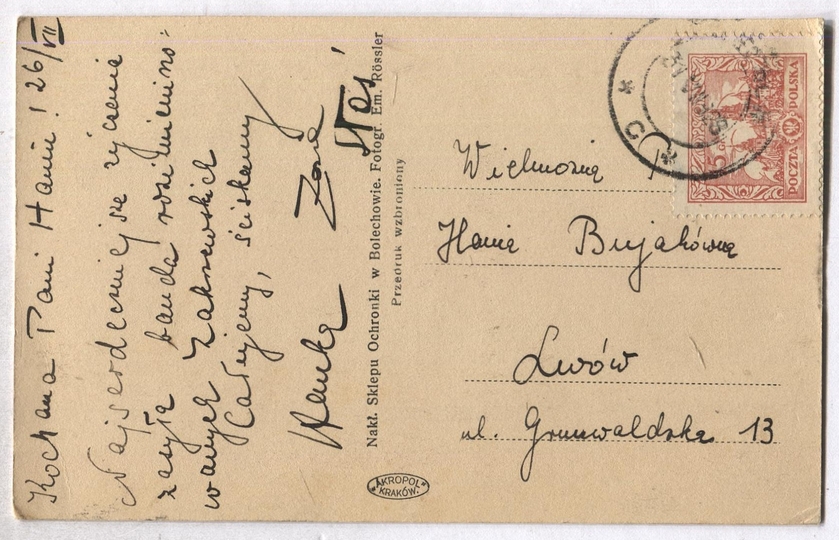 Kochana Pani Haniu! 26/VII
Najserdeczniejsze życzenia
zasyła banda rozśmieszo-
wanych Zakrzewskich
Całujemy, ściskamy
Hanka Zosia Staś
Nakł. Sklepu Ochronki w Bolechowie. Fotogr. Em. Rössler
Przedruk wzbroniony
AKROPOL
KRAKÓW.
POCZTA POLSKA
5
Wielmożna
Hania Bujakówna
Lwów
ul. Grunwaldzka 13